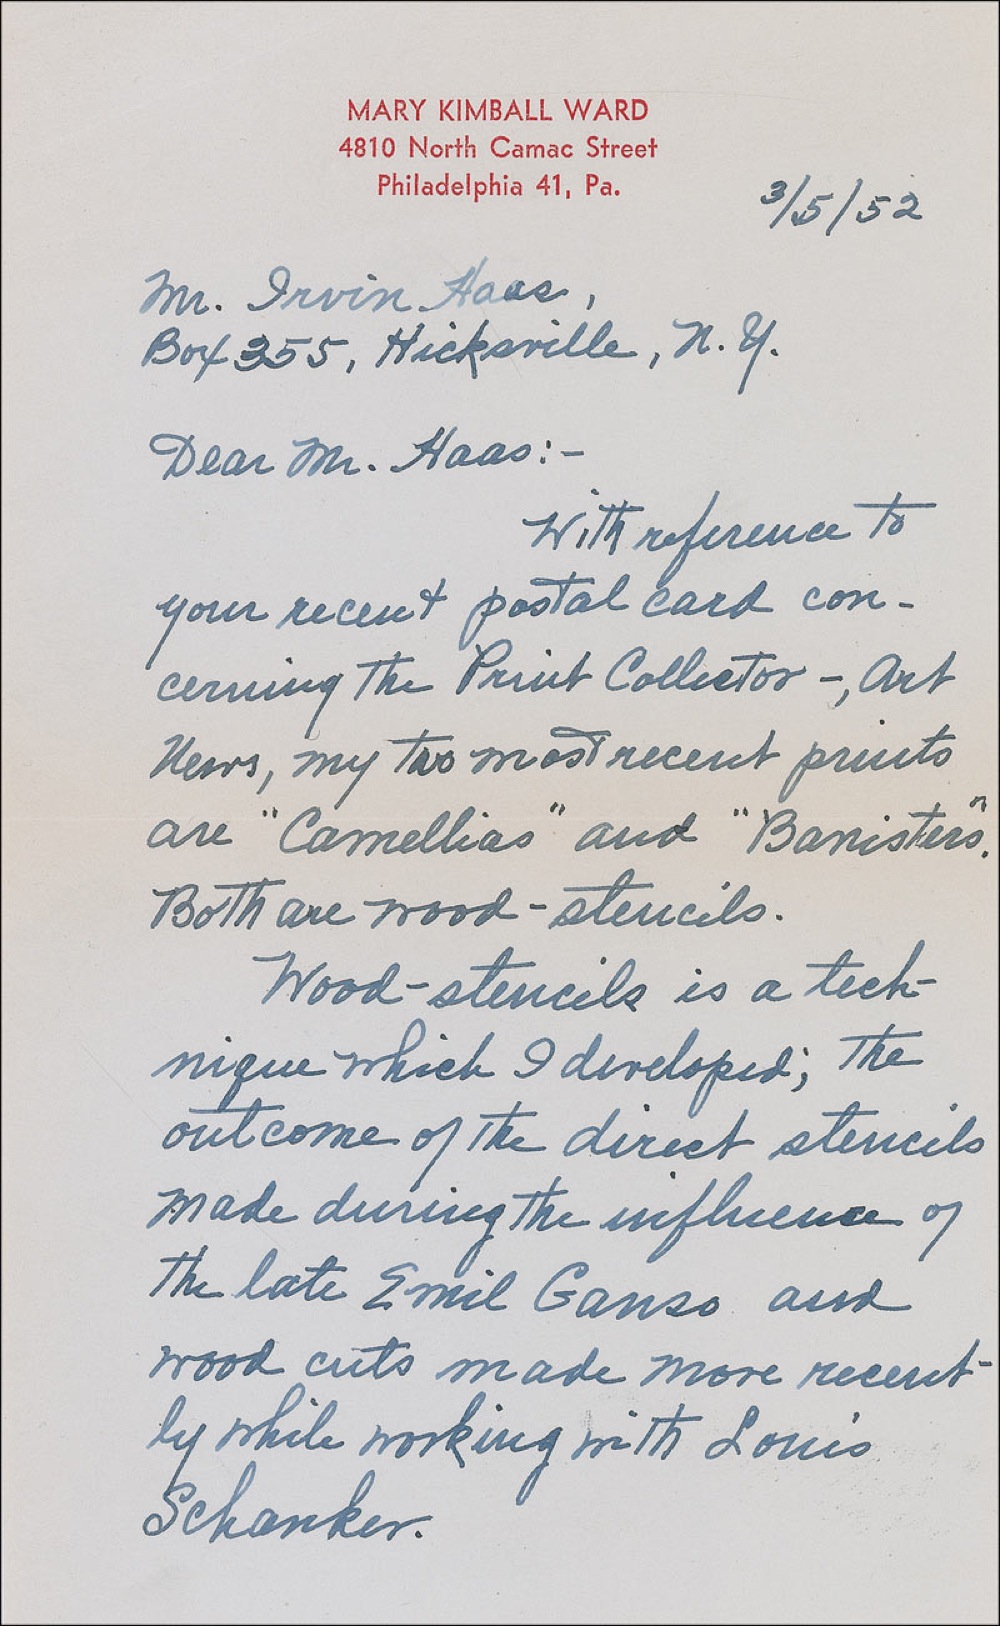 MARY KIMBALL WARD
4810 North Camac Street
Philadelphia 41, Pa.
3/5/52
Mr. Irvin Haas,
Box 355, Hicksville, N.Y.
Dear Mr. Haas:-
With reference to
your recent postal card con-
cerning the Print Collector -, Art
News, my two most recent prints
are "Camellias" and "Banisters".
Both are wood-stencils.
Wood-stencils is a tech-
nique which I developed; the
outcome of the direct stencils
made during the influence of
the late Emil Ganso and
wood cuts made more recent-
ly while working with Louis
Schanker.